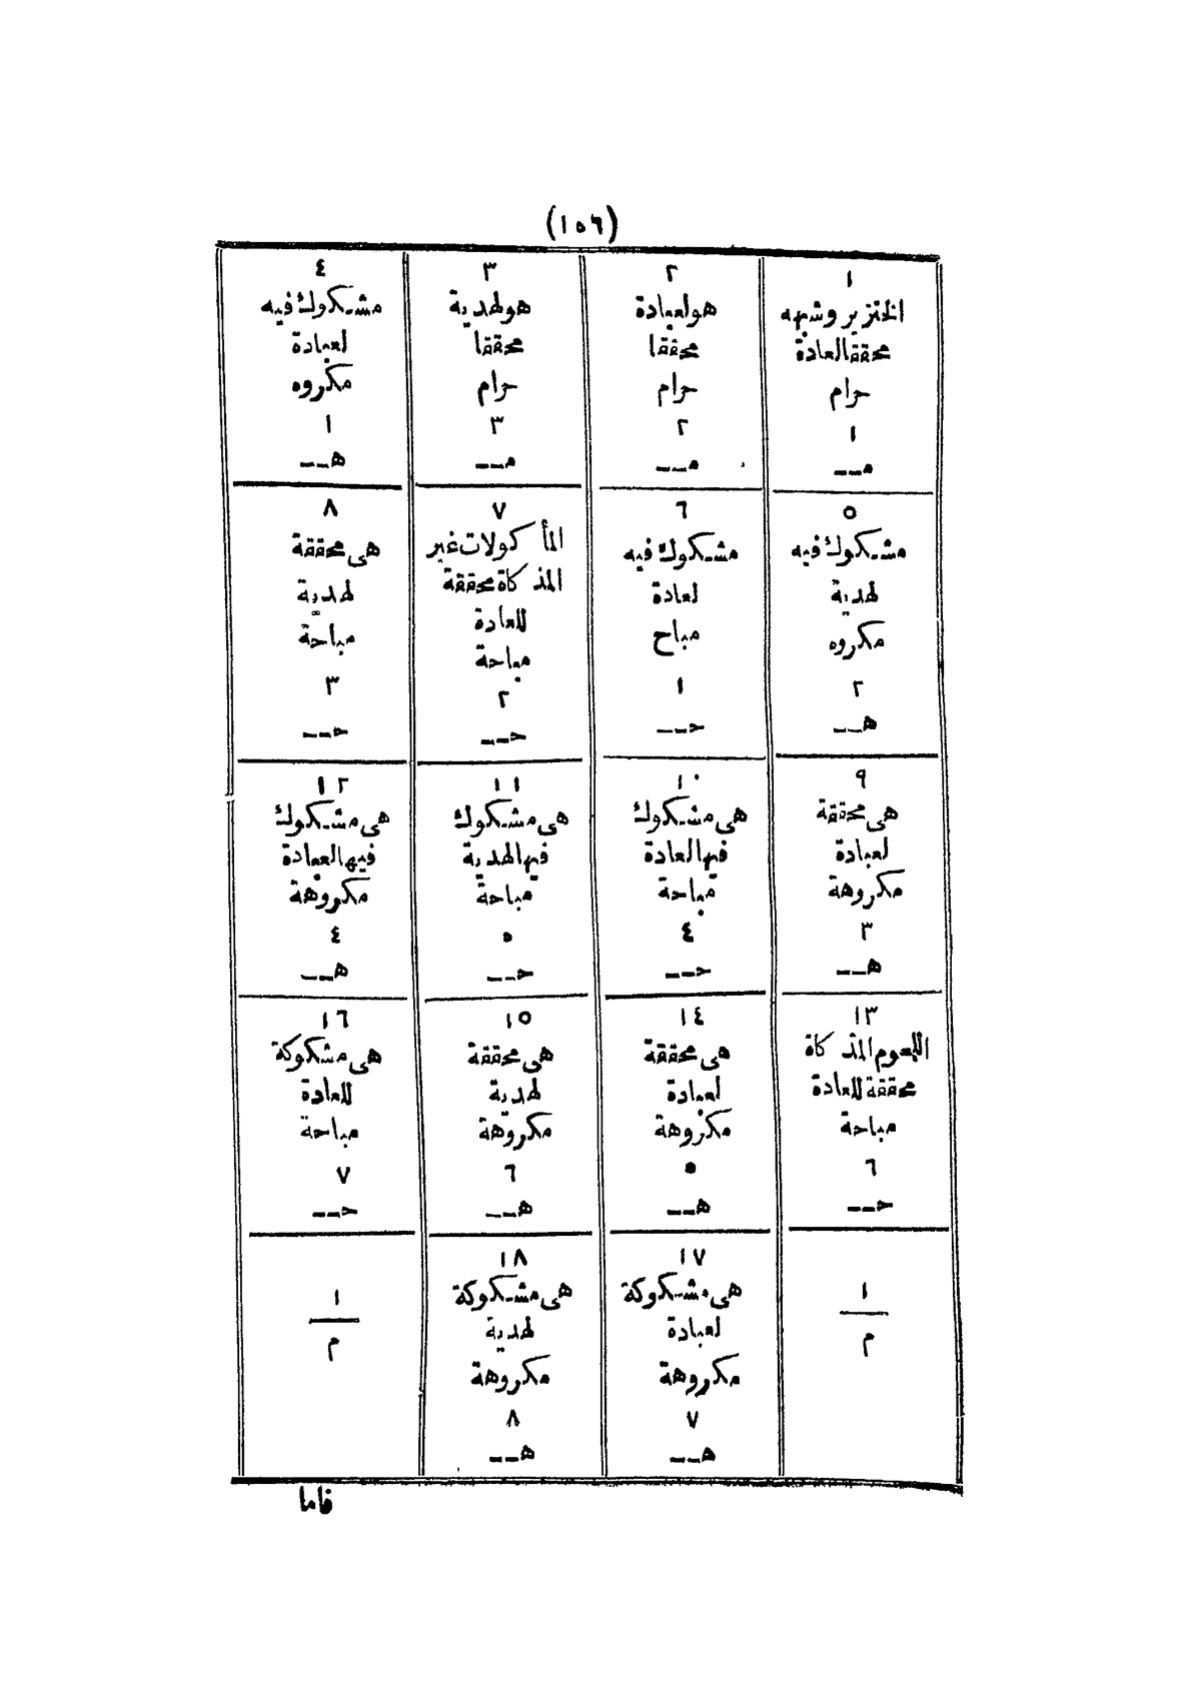 (١٥٦)
١
الخنزير وشبهه
محققة العادة
حرام
١
مــ
٢
هو لعبادة
محققا
حرام
٢
مــ
٣
هو لهدية
محققا
حرام
٣
مــ
٤
مشكوك فيه
لعبادة
مكروه
١
هــ
٥
مشكوك فيه
لهدية
مكروه
٢
هــ
٦
مشكوك فيه
لعادة
مباح
١
حــ
٧
المأكولات غير
المذكاة محققة
للعادة
مباحة
٢
حــ
٨
هى محققة
لهدية
مباحة
٣
حــ
٩
هى محققة
لعبادة
مكروهة
٣
هــ
١٠
هى مشكوك
فيها لعادة
مباحة
٤
حــ
١١
هى مشكوك
فيها لهدية
مباحة
٥
حــ
١٢
هى مشكوك
فيها لعبادة
مكروهة
٤
هــ
١٣
اللحوم المذكاة
محققة للعادة
مباحة
٦
حــ
١٤
هى محققة
لعبادة
مكروهة
٥
هــ
١٥
هى محققة
لهدية
مكروهة
٦
هــ
١٦
هى مشكوكة
للعادة
مباحة
٧
حــ
١
م
١٧
هى مشكوكة
لعبادة
مكروهة
٧
هــ
١٨
هى مشكوكة
لهدية
مكروهة
٨
هــ
١
م
فاما